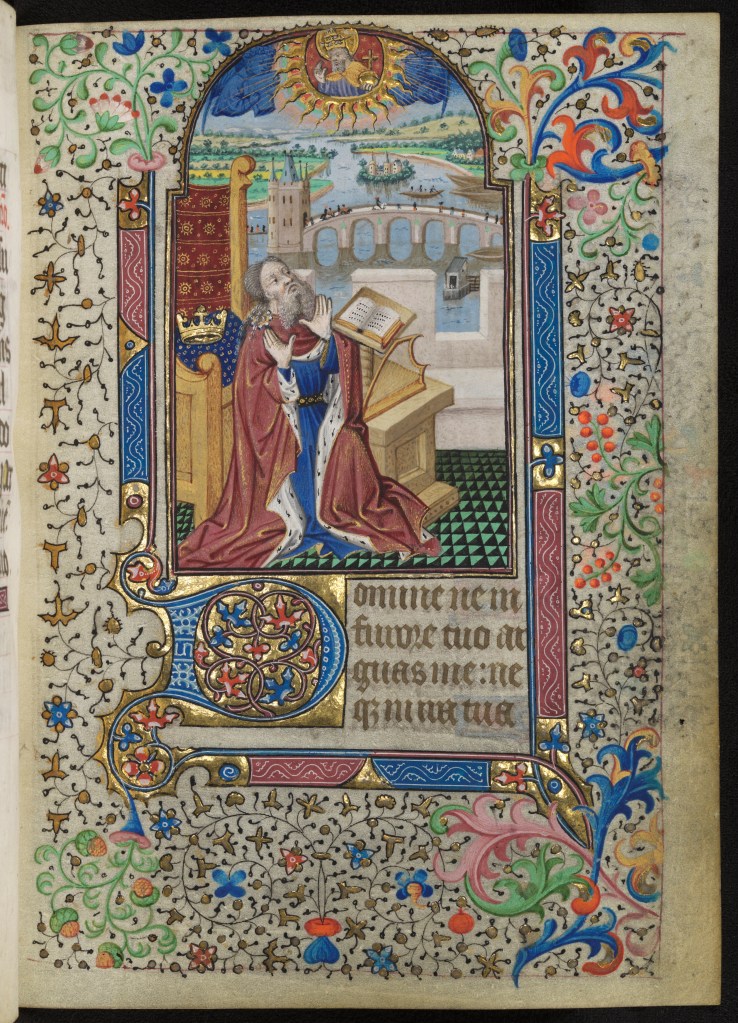 Domine ne in
furore tuo ar
guas me: ne
qȝ in ira tua